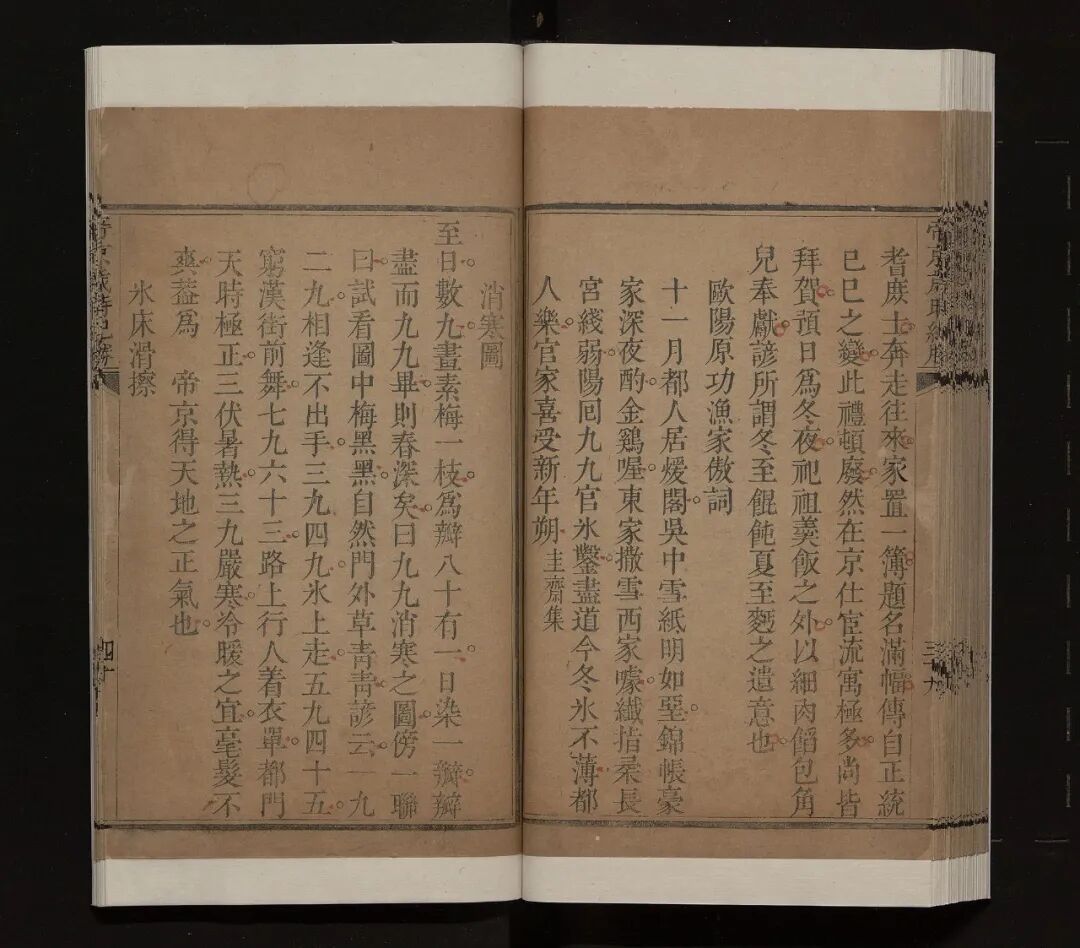 耆庶士奔走往來家置一簿題名滿幅傳自正統
已巳之變此禮頓廢然在京仕宦流寓極多尚皆
拜賀預日爲冬夜祀祖羹飯之外以細肉餡包角
兒奉獻諺所謂冬至餛飩夏至麪之遺意也
歐陽原功漁家傲詞
十一月都人居煖閣吳中雪紙明如堊錦帳豪
家深夜酌金鷄喔東家撒雪西家噱纖指柔長
宮綫弱陽囘九九官氷鑿盡道今冬氷不薄都
人樂官家喜受新年朔 圭齋集
帝京歲時紀勝
三十九
消寒圖
至日數九畫素梅一枝爲瓣八十有一日染一瓣瓣
盡而九九畢則春深矣曰九九消寒之圖傍一聯
曰試看圖中梅黑黑自然門外草青青諺云一九
二九相逢不出手三九四九氷上走五九四十五
窮漢街前舞七九六十三路上行人着衣單都門
天時極正三伏暑熱三九嚴寒冷暖之宜毫髮不
爽葢爲 帝京得天地之正氣也
氷床滑擦
帝京歲時紀勝
四十